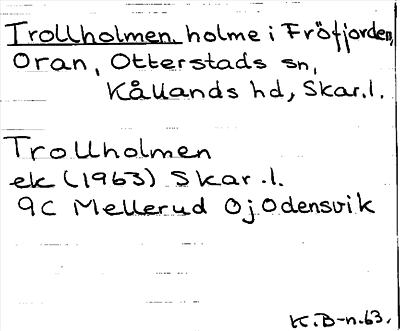 Trollholmen holme i Fröfjorden,
Oran, Otterstads sn,
Kållands hd, Skar.l.
Trollholmen
ek (1963) Skar.l.
9C Mellerud 0j Odensvik
K.B-n.63.